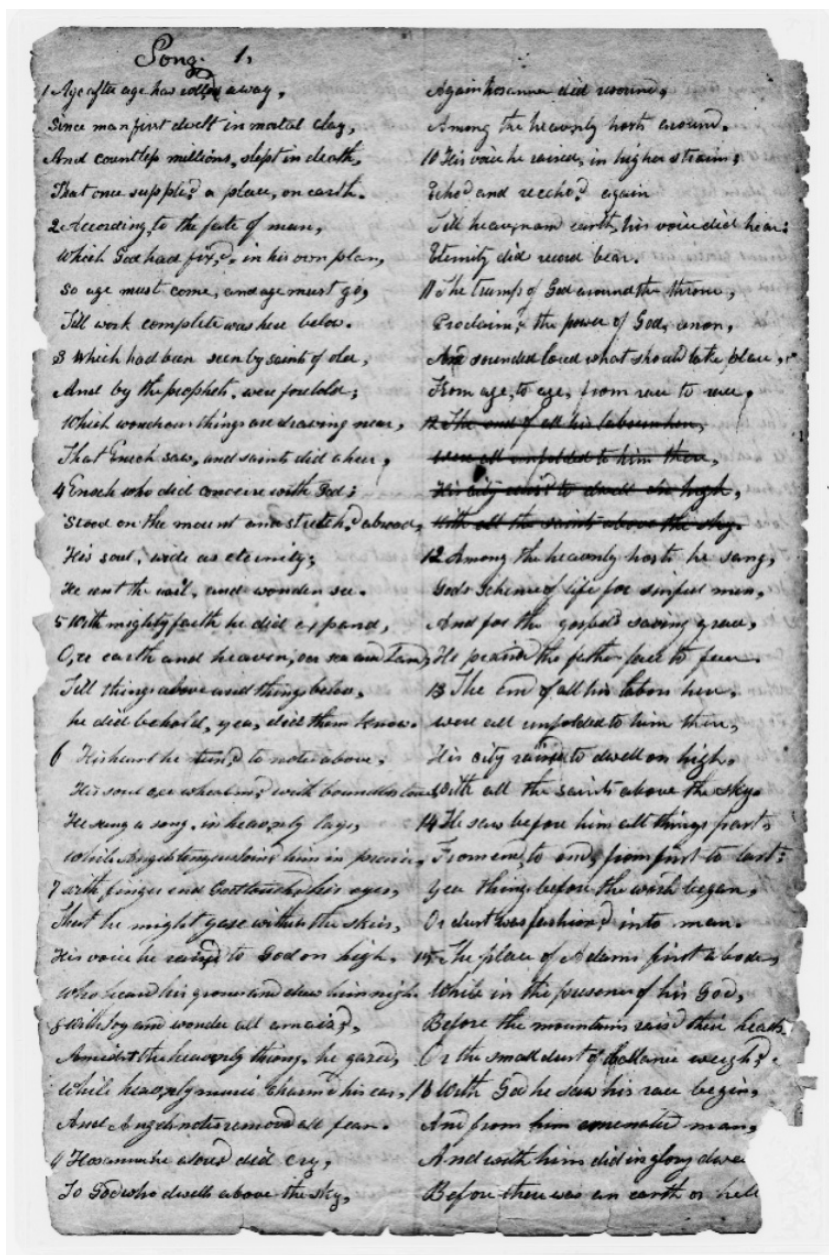 Song. 1,
1 Age after age has rolled away,
Since man first dwelt in mortal clay,
And countless millions, slept in death,
That once supplied a place, on earth.
2 According, to the fate of man,
Which God had fix,d, in his own plan,
So age must come, and age must go,
Till work complete was here below.
3 Which had been seen by saints of old,
And by the prophets, were foretold;
Which wondrous things are drawing near,
That Enoch saw, and saints did hear,
4 Enoch who did converse with God;
Stood on the mount and stretch,d abroad,
His soul, wide as eternity;
He rent the vail, and wonders see.
5 With mighty faith he did expand,
O,re earth and heaven, oer sea and land,
Till things above and things below,
he did behold, yea, did them know.
6 His heart he tun,d to notes above,
His soul ore whealm,d with boundless love
He sung a song, in heavenly lays,
While Angels tongues Join,d him in praise,
7 With finger end God touch,d his eyes,
That he might gase within the skies,
His voice he raised to God on high.
Who heard his groans and drew him nigh
8 With Joy and wonder all amaizd,
Amidst the heavenly throng, he gazed,
While heavenly music charmd his ear,
And Angels notes removed all fear.
9 Hosanna he aloud did cry,
To God who dwells above the sky,
Again hosanna did resound,
Among the heavenly hosts around.
10 His voice he raised, in higher strains;
Echod and reecho,d again
Till heaven and earth, his voice did hear:
Eternity did record bear.
11 The trump of God around the throne,
Proclaim,d the power of God, anon,
And sounded loud what should take place,
From age, to age, from race to race,
12 The end of all his labours here,
were all unfolded to him there,
His city rais'd to dwell on high,
With all the saints above the sky.
12 Among the heavenly hosts he sang,
Gods scheme of life for sinful man,
And for the gospels saving grace,
He praised the father face to face.
13 The end of all his labors here,
were all unfolded to him there,
His city raised to dwell on high,
With all the saints above the sky.
14 He saw before him all things past,
From end, to end, from first to last:
Yea things before the world began,
Or dust was fashion,d into man.
15 The place of Adams first abode,
While in the presence of his God,
Before the mountains rais'd their heads
Or the small dust of ballance weigh,d.
16 With God he saw his race begin,
And from him emenated man,
And with him did in glory
Before there was an earth or hell